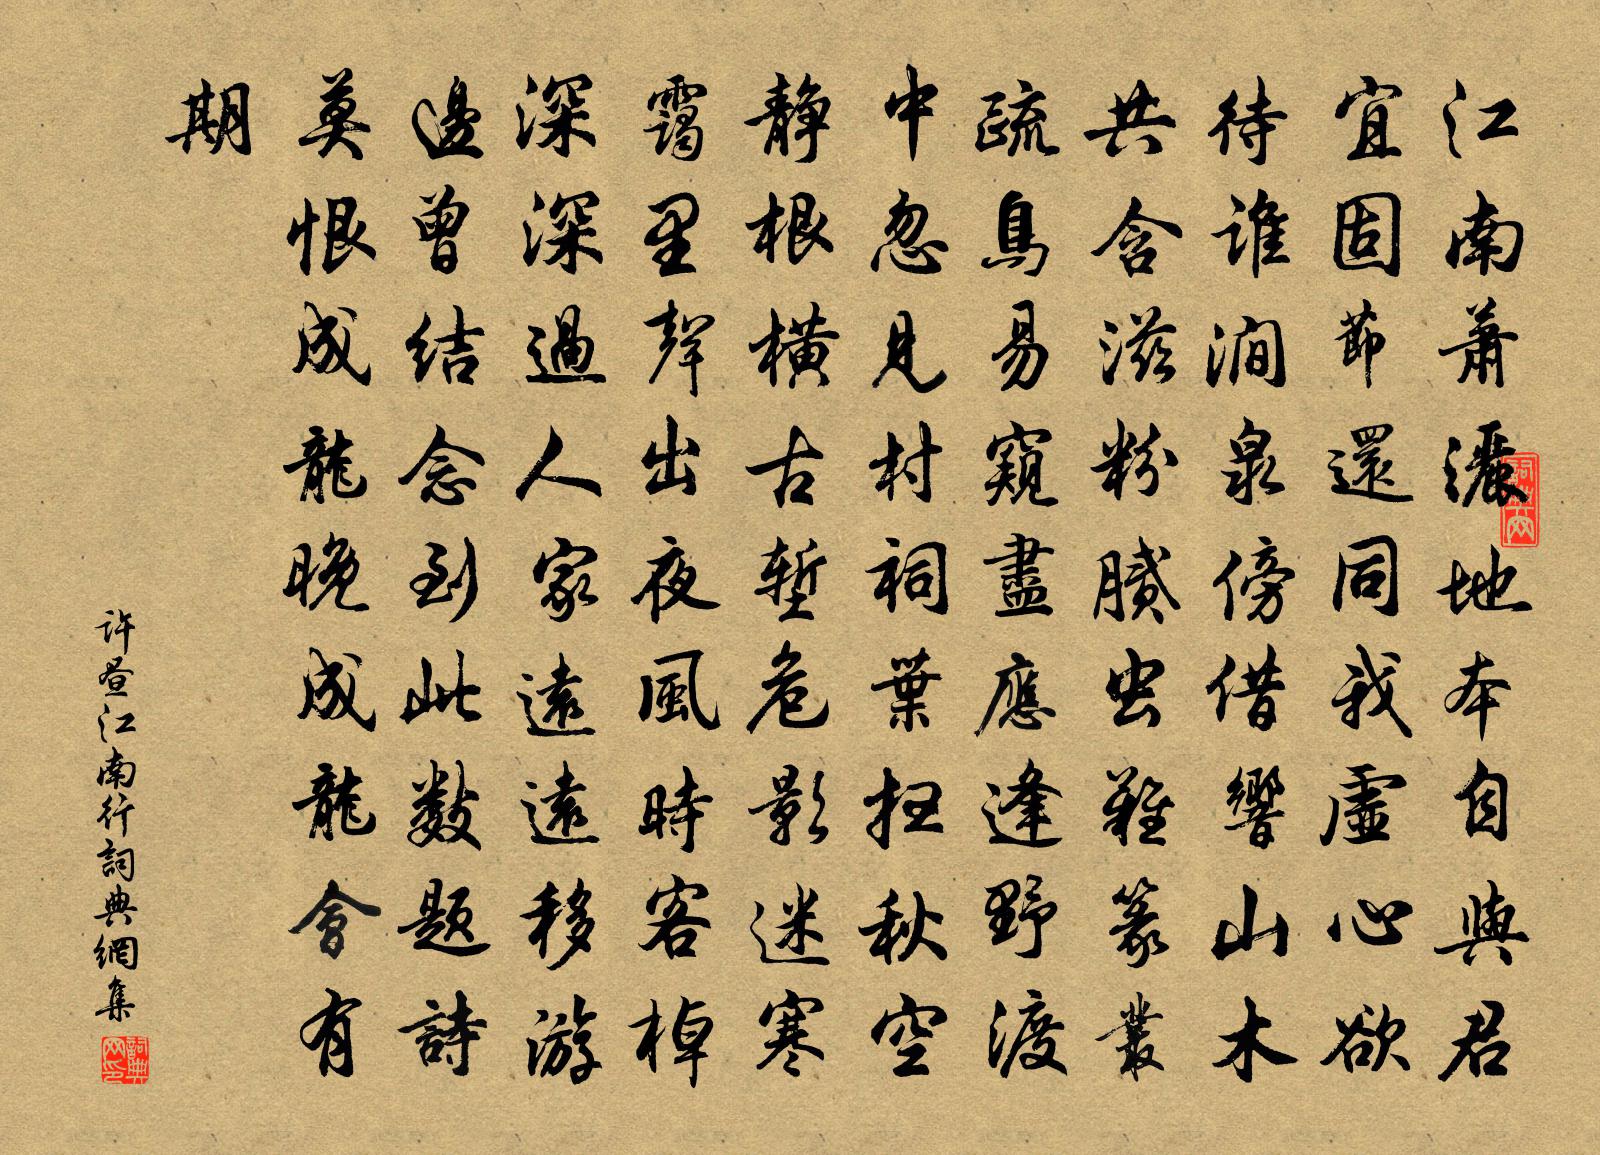 江南蕭灑地本自與君
宜固節還同我虛心欲
待誰澗泉傍借響山木
共含滋粉膩虫難篆叢
疏鳥易窺盡應逢野渡
中忽見村祠葉扫秋空
静根橫古塹危影迷寒
靄里聲出夜風時客棹
深深過人家遠遠移游
邊曾結念到此數題詩
莫恨成龍晚成龍會有
期
許晝江南行詞典網集
詞典网印